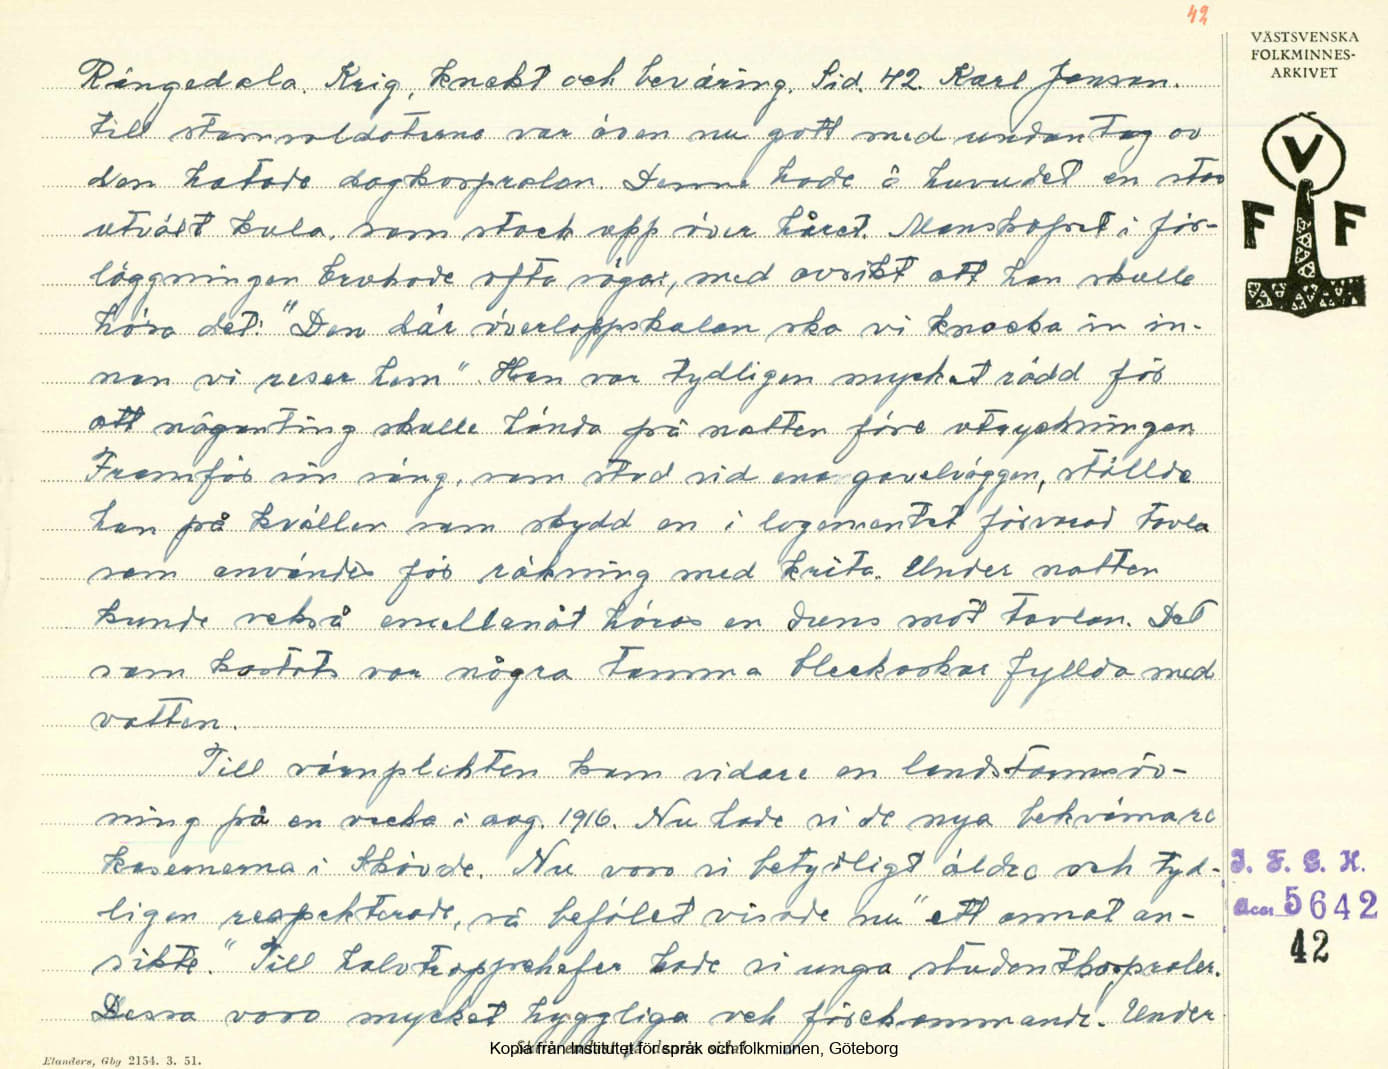 42
VÄSTSVENSKA
FOLKMINNES-
ARKIVET
V
F F
Rångedala. Krig, knekt och beväring. Sid. 42. Karl Jonson.
till stamsoldaterna var även nu gott med undantag av
den hatade dagkorpralen. Denne hade å huvudet en stor
utväxt kula, som stack upp över håret. Manskapet i för-
läggningen brukade ofta säga:, med avsikt att han skulle
höra det: "Den där överloppskulan ska vi knacka in in-
nan vi reser hem". Han var tydligen mycket rädd för
att någonting skulle hända på natten före utryckningen.
Framför sin säng, som stod vid ena gavelväggen, ställde
han på kvällen som skydd en i logementet förvarad tavla
som användes för räkning med krita. Under natten
kunde också emellanåt höras en duns mot tavlan. Det
som kastats var några tomma bleckaskar fyllda med
vatten.
Till värnplikten kom vidare en landstormsöv-
ning på en vecka i aug. 1916. Nu hade vi de nya bekvämare
kasernerna i Skövde. Nu voro vi betydligt äldre och tyd-
ligen respekterade, så befälet visade nu "ett annat an-
sikte." Till halvtroppchefer hade vi unga studentkorpraler.
Dessa voro mycket hyggliga och förekommande. Under
I. F. G. H.
Acc. 5642
42
Elanders, Gby 2154. 3. 51.
Kopia från Institutet för språk och folkminnen, Göteborg